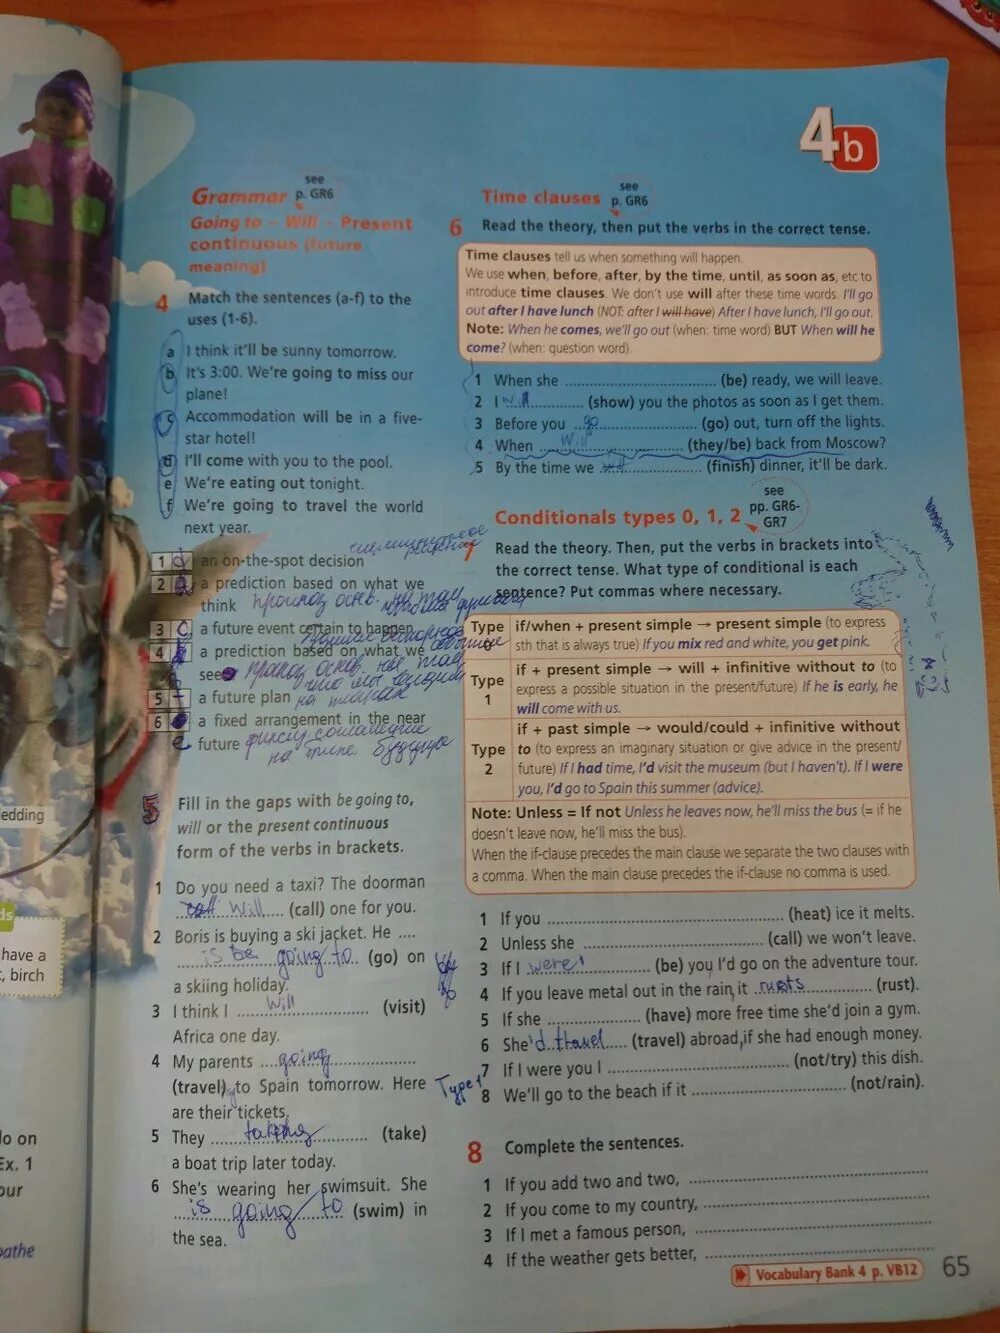 edding
ds
have a
, birch
do on
Ex. 1
our
bathe
4b
Grammar
see
p. GR6
Going to – Will – Present
continuous (future
meaning)
4 Match the sentences (a-f) to the
uses (1-6).
a I think it'll be sunny tomorrow.
b It's 3:00. We're going to miss our
plane!
c Accommodation will be in a five-
star hotel!
d I'll come with you to the pool.
e We're eating out tonight.
f We're going to travel the world
next year.
1 d an on-the-spot decision
2 a a prediction based on what we
think прогноз основ. на том
3 c a future event certain to happen
4 a prediction based on what we
see
5 f a future plan на планах
6 a fixed arrangement in the near
e future
5 Fill in the gaps with be going to,
will or the present continuous
form of the verbs in brackets.
1 Do you need a taxi? The doorman
will (call) one for you.
2 Boris is buying a ski jacket. He ....
is be going to (go) on
a skiing holiday.
3 I think I will (visit)
Africa one day.
4 My parents going
(travel) to Spain tomorrow. Here
are their tickets.
5 They taking (take)
a boat trip later today.
6 She's wearing her swimsuit. She
is going to (swim) in
the sea.
Time clauses
see
p. GR6
6 Read the theory, then put the verbs in the correct tense.
Time clauses tell us when something will happen.
We use when, before, after, by the time, until, as soon as, etc to
introduce time clauses. We don't use will after these time words. I'll go
out after I have lunch (NOT: after I will have) After I have lunch, I'll go out.
Note: When he comes, we'll go out (when: time word) BUT When will he
come? (when: question word).
1 When she .................... (be) ready, we will leave.
2 I will .......... (show) you the photos as soon as I get them.
3 Before you go .......... (go) out, turn off the lights.
4 When will .......... (they/be) back from Moscow?
5 By the time we .................... (finish) dinner, it'll be dark.
Conditionals types 0, 1, 2
see
pp. GR6-
GR7
7 Read the theory. Then, put the verbs in brackets into
the correct tense. What type of conditional is each
sentence? Put commas where necessary.
Type 0 if/when + present simple → present simple (to express
sth that is always true) If you mix red and white, you get pink.
Type 1 if + present simple → will + infinitive without to (to
express a possible situation in the present/future) If he is early, he
will come with us.
Type 2 if + past simple → would/could + infinitive without
to (to express an imaginary situation or give advice in the present/
future) If I had time, I'd visit the museum (but I haven't). If I were
you, I'd go to Spain this summer (advice).
Note: Unless = If not Unless he leaves now, he'll miss the bus (= if he
doesn't leave now, he'll miss the bus).
When the if-clause precedes the main clause we separate the two clauses with
a comma. When the main clause precedes the if-clause no comma is used.
1 If you .................... (heat) ice it melts.
2 Unless she .................... (call) we won't leave.
3 If I were .......... (be) you I'd go on the adventure tour.
4 If you leave metal out in the rain, it rusts .......... (rust).
5 If she .......... (have) more free time she'd join a gym.
6 She'd travel .... (travel) abroad, if she had enough money.
7 If I were you I .................... (not/try) this dish.
Type 1
8 We'll go to the beach if it .................... (not/rain).
8 Complete the sentences.
1 If you add two and two, ....................
2 If you come to my country, ....................
3 If I met a famous person, ....................
4 If the weather gets better, ....................
Vocabulary Bank 4 p. VB12
65